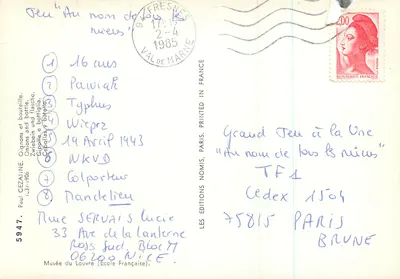 Jeu "Au nom de tous les
miens"
① 16 ans
② Pawiak
③ Typhus
④ Wiepez
⑤ 19 Avril 1943
⑥ NKVD
⑦ Colporteur
⑧ Mandelieu
Mme SERVAIS Lucie
33 Ave de la Lanterne
Ross Sud, Bloc M
06200 NICE
FRESNES
2-4
1985
VAL DE MARNE
2,00
Grand Jeu à la Une
"Au nom de tous les miens"
TF1
Cedex 1504
75815 PARIS
BRUNE
LES EDITIONS NOMIS, PARIS. PRINTED IN FRANCE
5947. Paul CEZANNE.
Musée du Louvre (Ecole Française).